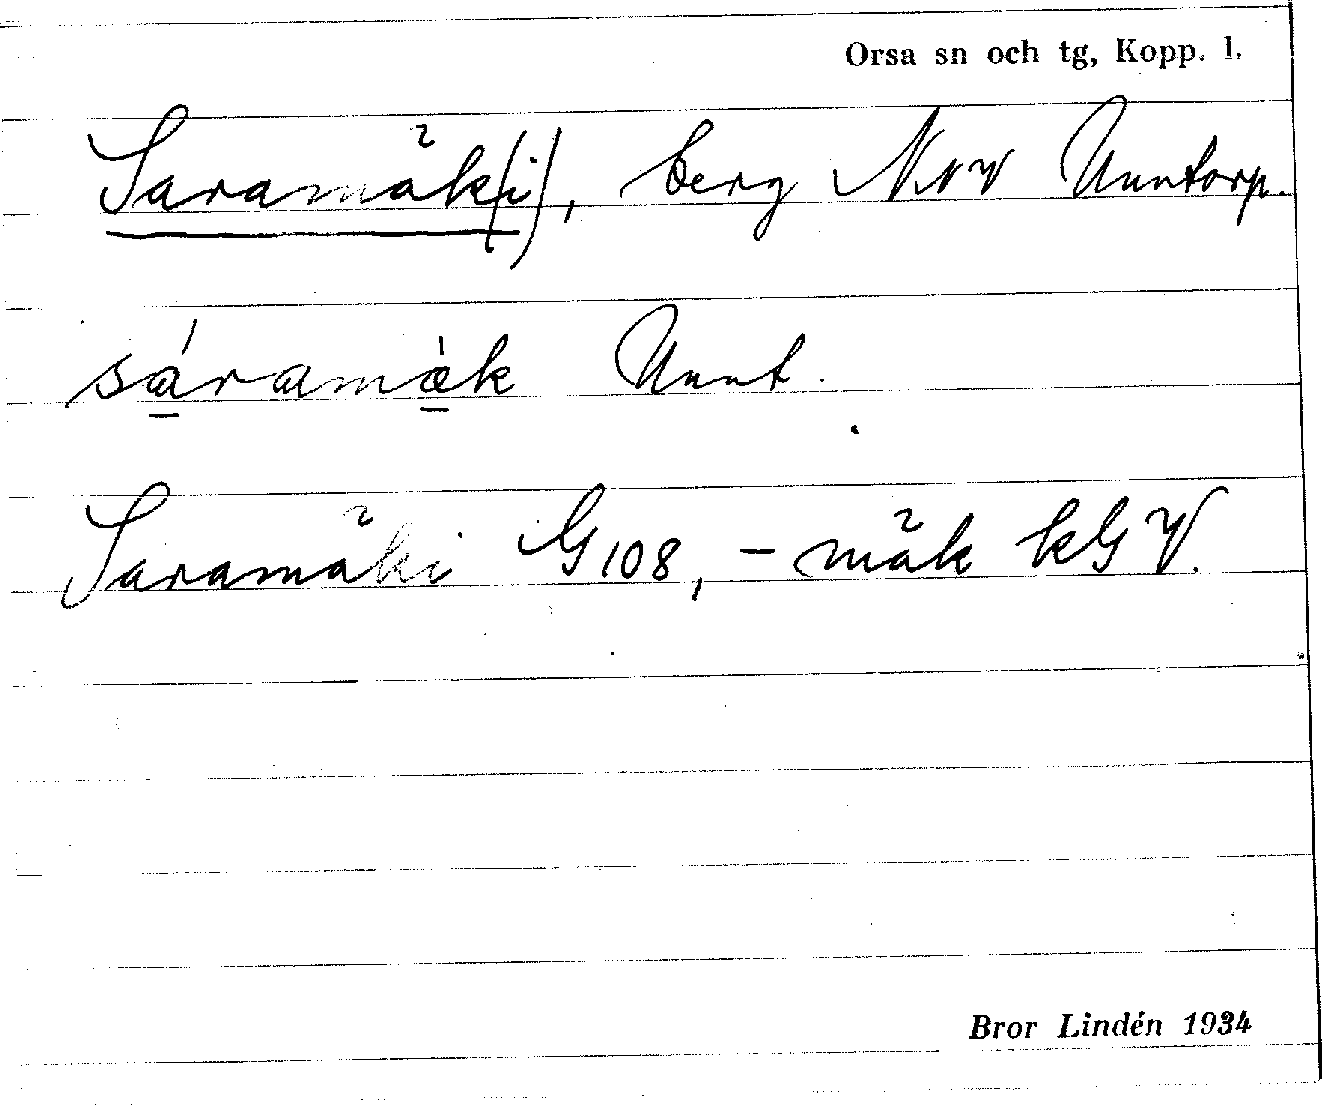 Orsa sn och tg, Kopp. l.
Saramäk(i), berg NNV Unntorp.
sáramàk Unnt.
Saramäki G 108, - mäk kGV.
Bror Lindén 1934